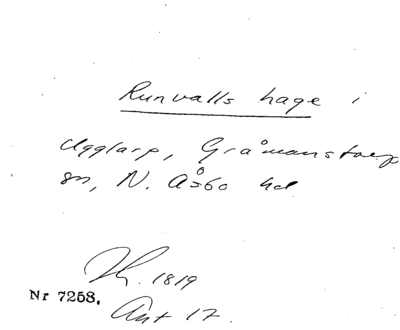 Runvalls hage i
Ugglarp, Gråmanstorps
sn, N. Åsbo hd
Th. 1819
Nr 7258.
Ant 17.